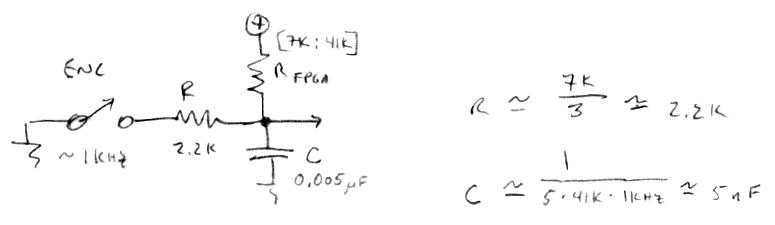 +
[7K:41K]
ENC
R
R FPGA
~1KHz
2.2K
C
0.005μF
R ≃ 7K/3 ≃ 2.2K
C ≃ 1/5·41K·1KHz ≃ 5nF